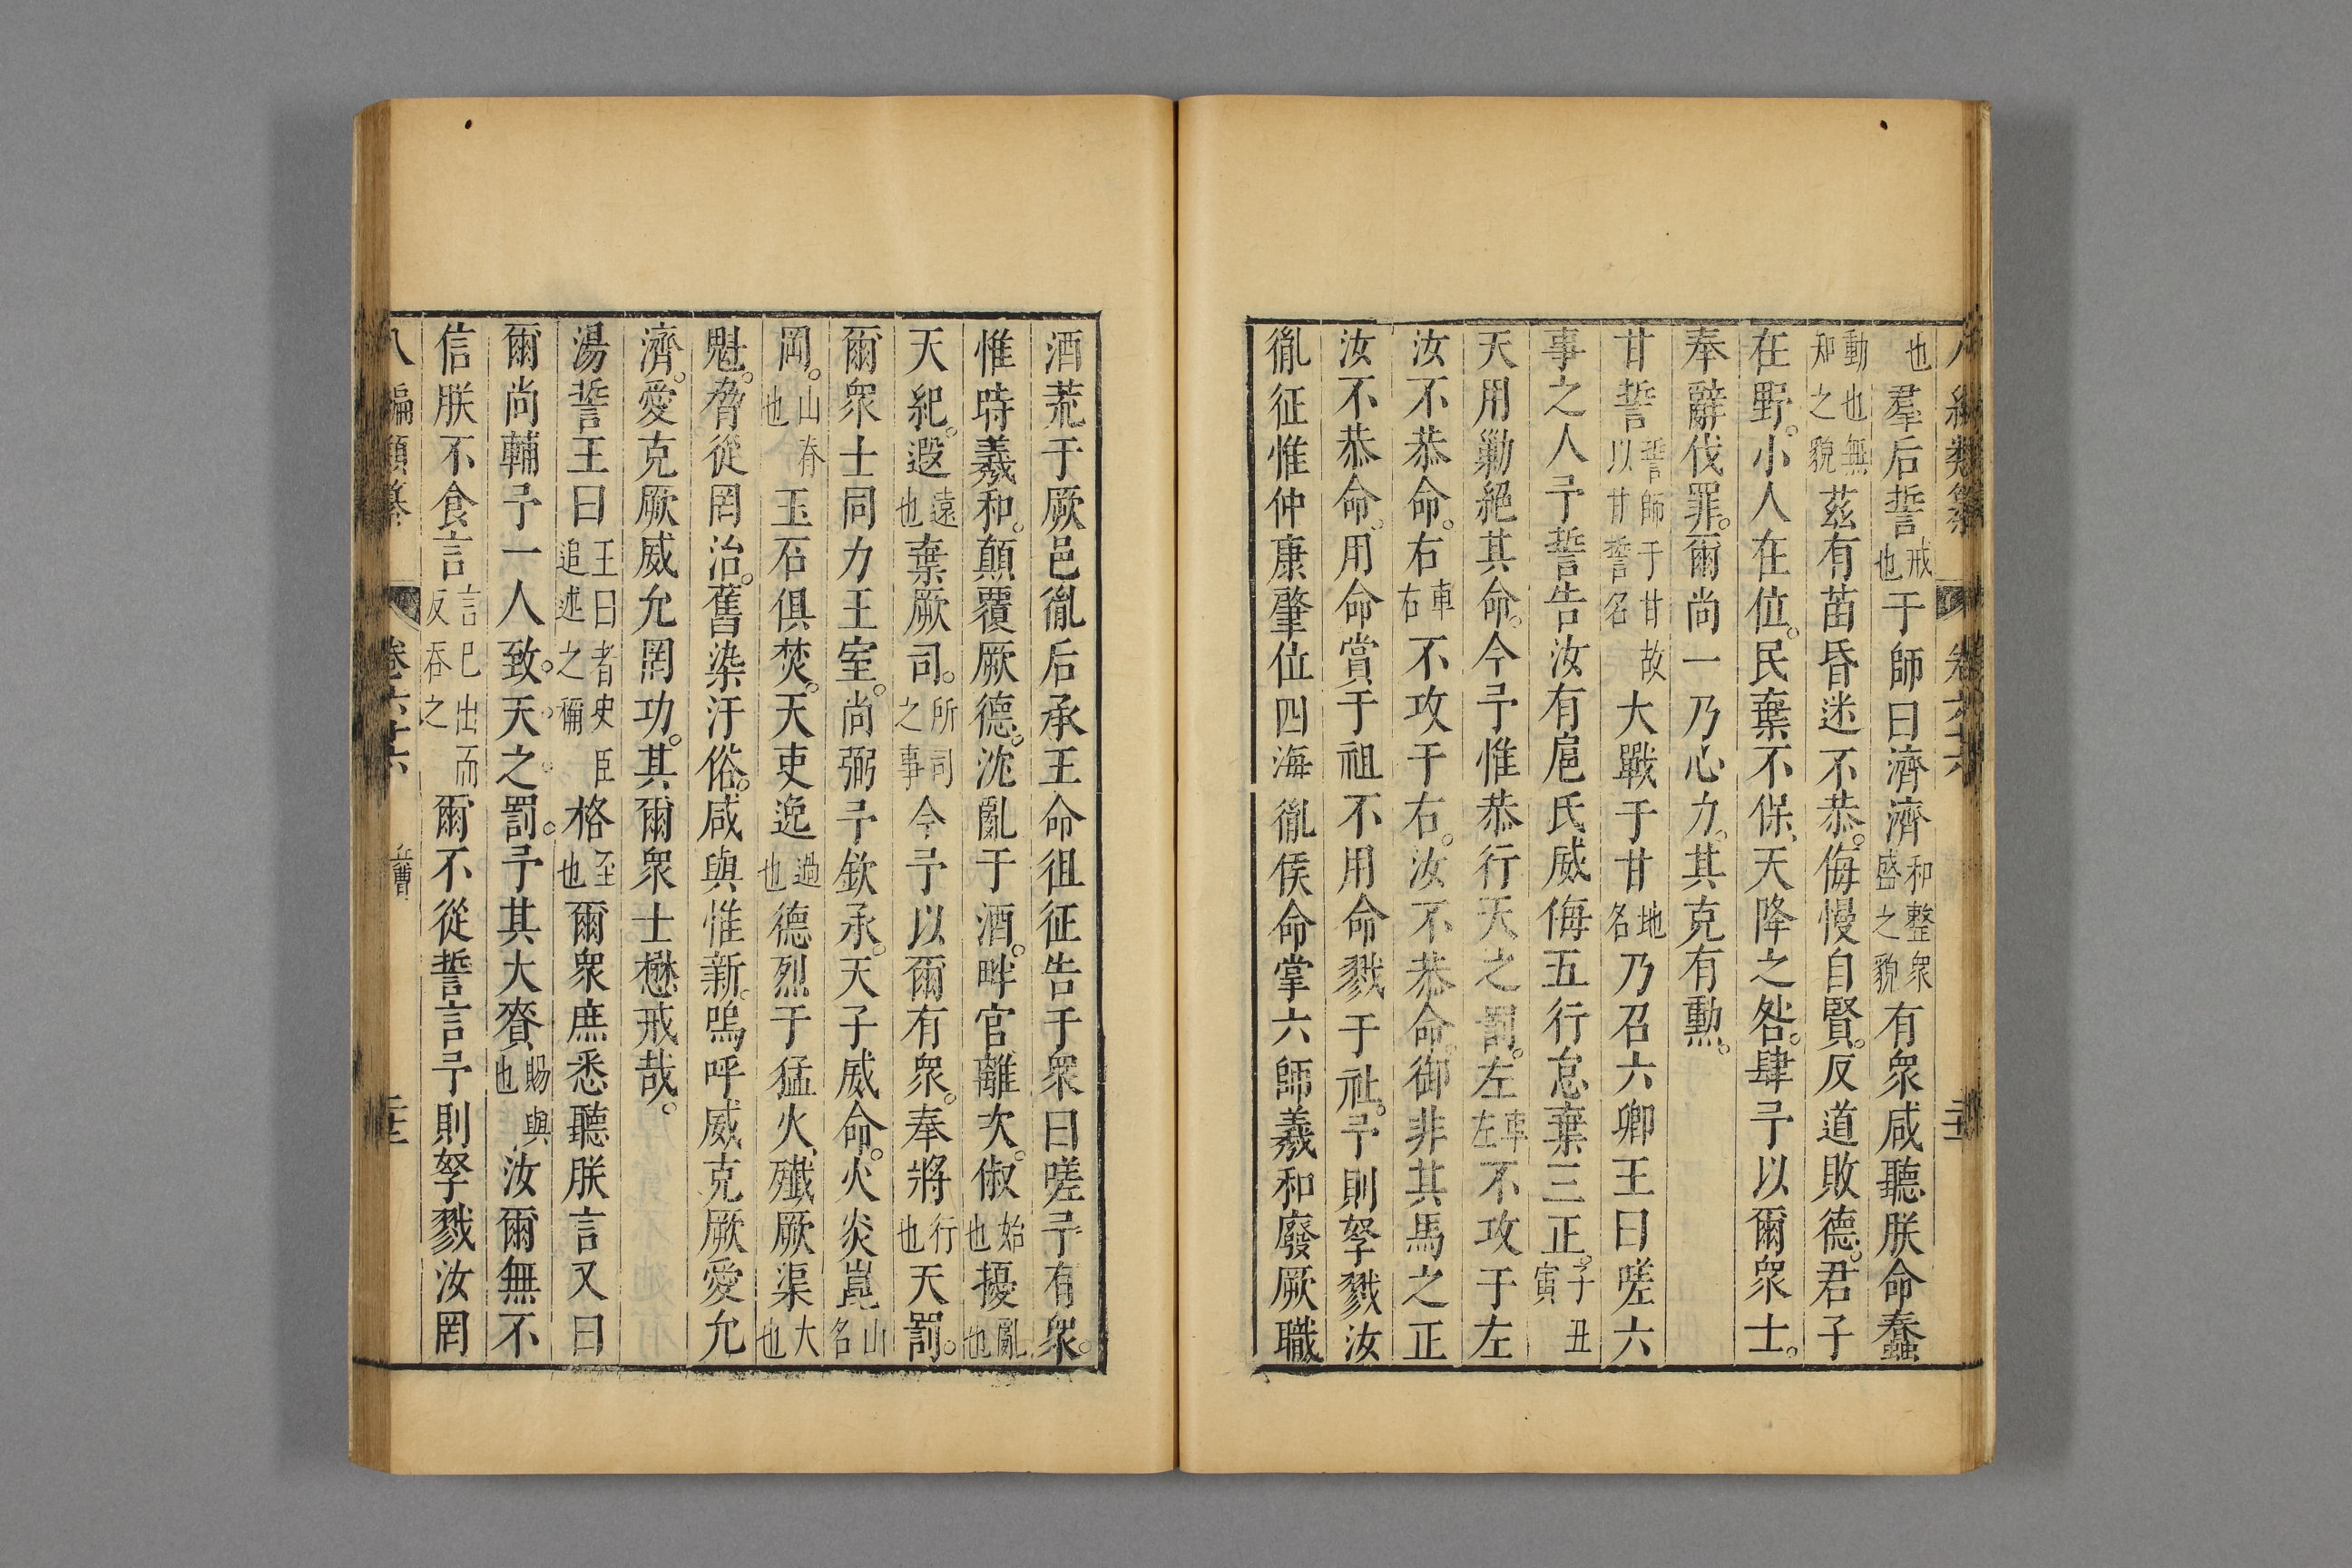 八編類纂 卷六十六
也羣后誓戒也于師曰濟濟和整衆盛之貌有衆咸聽朕命蠢
動也無知之貌茲有苗昏迷不恭。侮慢自賢。反道敗德。君子
在野。小人在位。民棄不保、天降之咎。肆予以爾衆士。
奉辭伐罪。爾尚一乃心力。其克有勲。
甘誓誓師于甘故以甘誓名大戰于甘地名乃召六卿王曰嗟六
事之人予誓告汝有扈氏威侮五行怠棄三正。子丑寅
天用勦絕其命。今予惟恭行天之罰。左車左不攻于左
汝不恭命。右車右不攻于右。汝不恭命。御非其馬之正
汝不恭命。用命賞于祖不用命戮于社。予則孥戮汝
胤征惟仲康肇位四海胤侯命掌六師羲和廢厥職
酒荒于厥邑胤后承王命徂征告于衆曰嗟予有衆。
惟時羲和。顛覆厥德。沈亂于酒。畔官離次。俶始也擾亂也
天紀。遐遠也棄厥司。所司之事今予以爾有衆。奉將行也天罰。
爾衆士同力王室。尚弼予欽承。天子威命。火炎崑山名
岡。山脊也玉石俱焚。天吏逸過也德烈于猛火、殲厥渠大也
魁。脅從罔治。舊染汙俗。咸與惟新。嗚呼威克厥愛允
濟。愛克厥威允罔功。其爾衆士懋戒哉。
湯誓王曰王曰者史臣追述之稱格至也爾衆庶悉聽朕言又曰
爾尚輔予一人致。天。之。罰。予其大賚賜與也汝爾無不
信朕不食言言已出而反吞之爾不從誓言予則孥戮汝罔
八編類纂 卷六十六